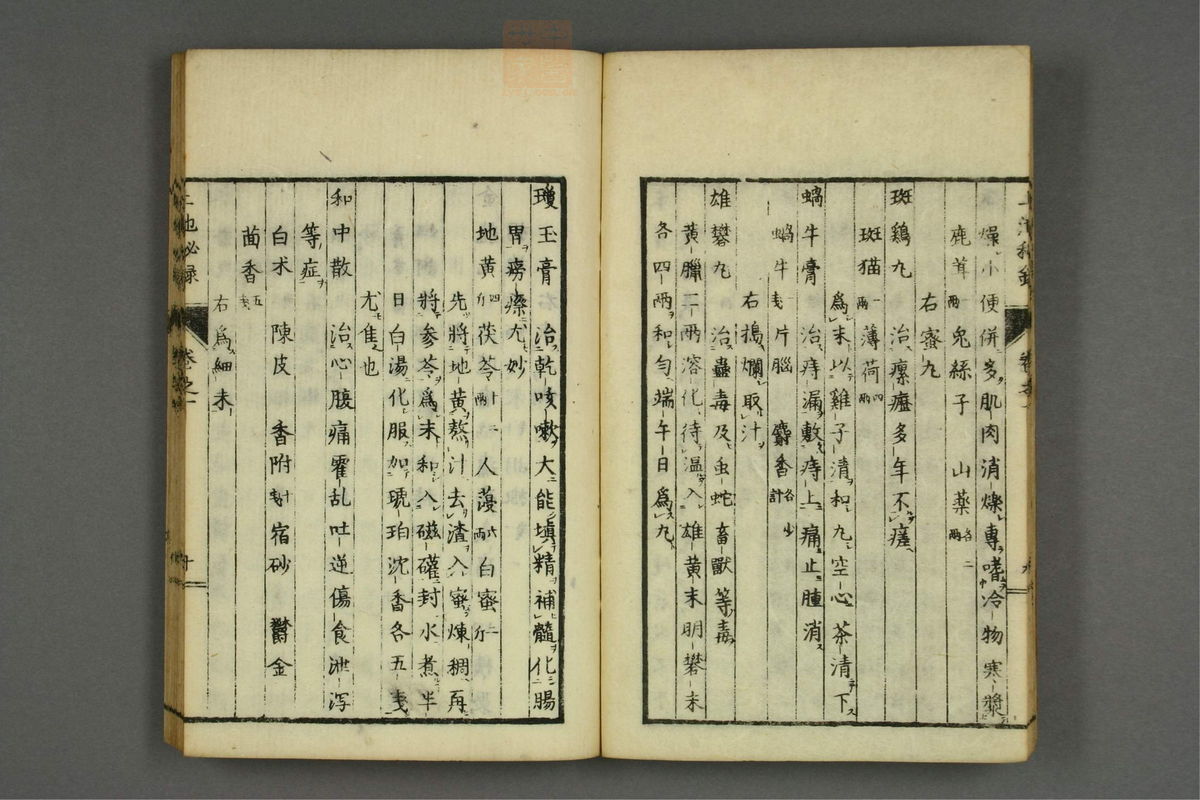 燥小便併多肌肉消爍專嗜冷物寒漿
鹿茸兩 兔絲子 山薬各二兩
右蜜丸
斑鶏丸 治瘰癧多年不瘥
斑猫一兩 薄荷四兩
爲末以雞子清和丸空心茶清下
蝸牛膏 治痔漏敷痔上痛止腫消
蝸牛一戔 片腦 麝香各少計
右搗爛取汁
雄礬丸 治蟲毒及虫蛇畜獸等毒
黃臘二兩溶化待温入雄黄末明礬末
各四兩和匀端午日爲丸
瓊玉膏 治乾咳嗽大能塡精補髓化腸
胃癆瘵尤妙
地黄四斤 茯苓十二兩 人蓡六兩 白蜜一斤
先將地黄熬汁去渣入蜜煉稠再
將參苓爲末和入磁礶封水煮半
日白湯化服加琥珀沈香各五戔
尤隹也
和中散 治心腹痛霍乱吐逆傷食泄泻
等症
白朮 陳皮 香附 宿砂 欝金
茴香五戔
右爲細末
卷之一